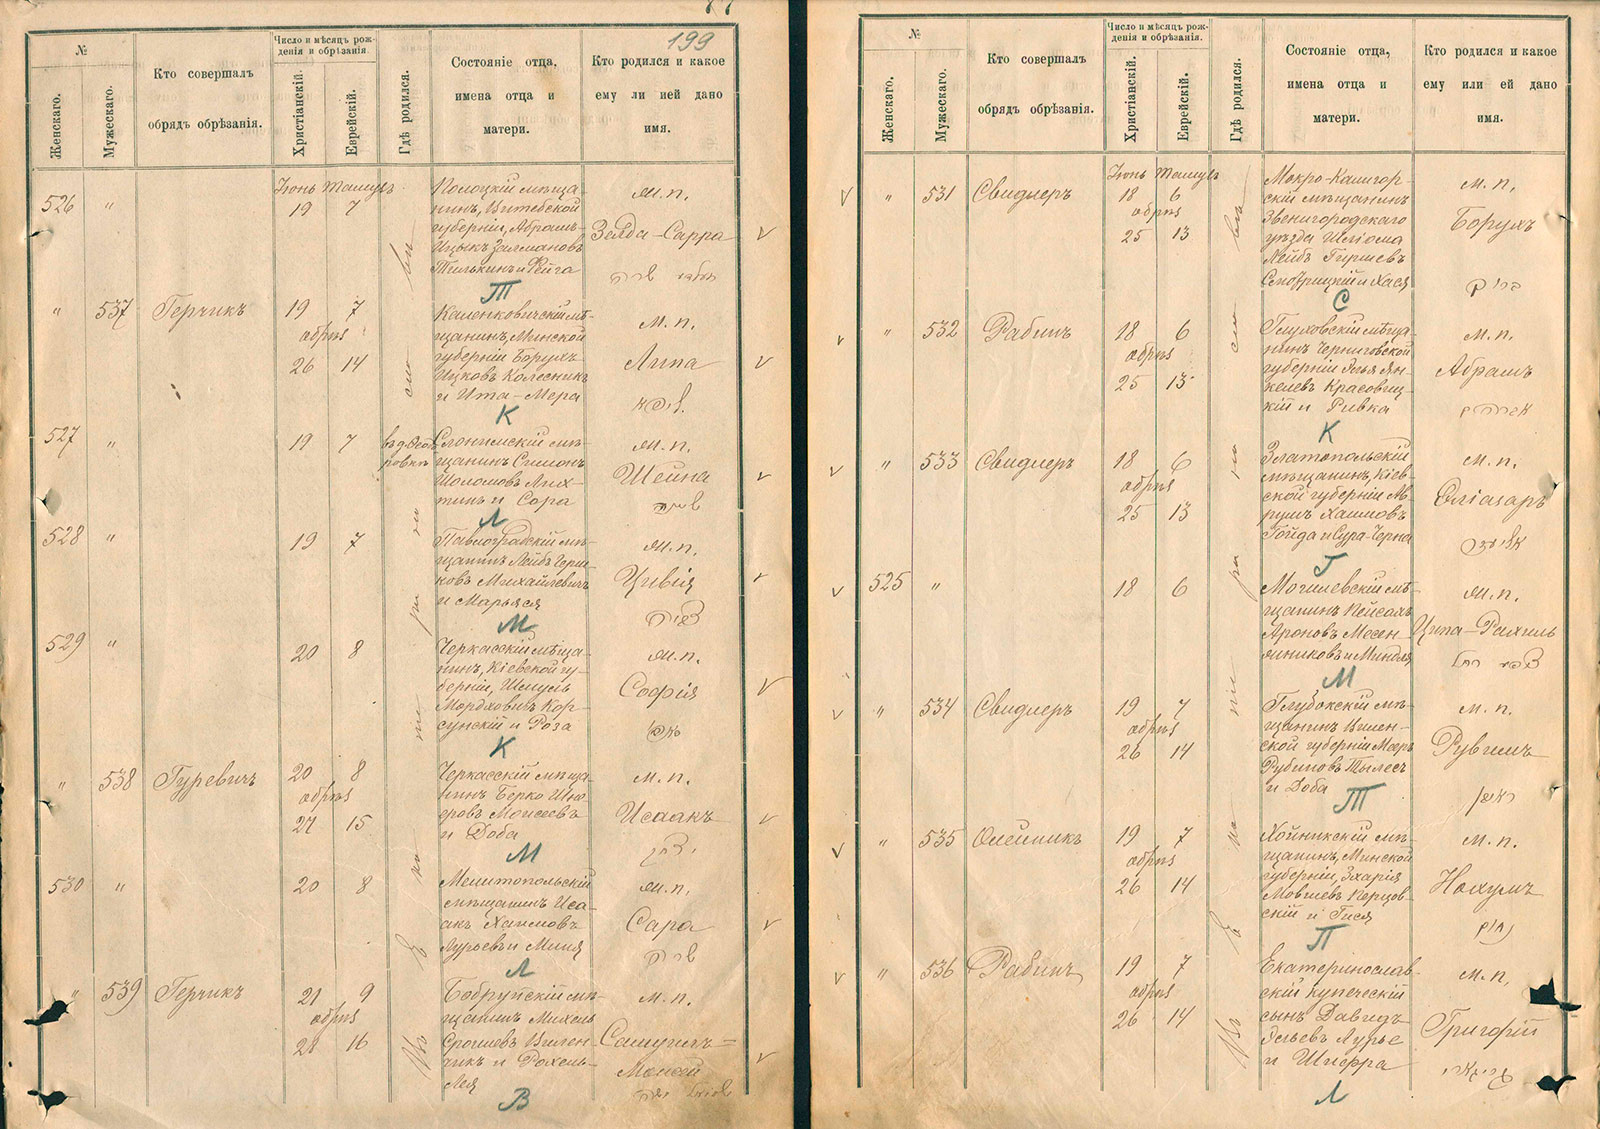 199
№
Женскаго.
Мужескаго.
Кто совершалъ
обрядъ обрѣзанія.
Число и мѣсяцъ рож-
денія и обрѣзанія.
Христіанскій.
Еврейскій.
Гдѣ родился.
Состояніе отца,
имена отца и
матери.
Кто родился и какое
ему ли ией дано
имя.
Іюнь Тамузъ
526 " 19 7
Полоцкій мѣща-
нинъ, Витебской
губерніи, Абрамъ-
Ицыкъ Залмановъ
Тилькинъ и Фейга
Т
м.п.
Зелда-Сарра
" 537 Герчикъ 19 7
обрѣз
26 14
Каленковичскій мѣ-
щанинъ, Минской
губерніи Борухъ
Ицковъ Колесникъ
и Ита-Мера
К
м.п.
Липа
527 " 19 7
Слонимскій мѣ-
щанинъ Симонъ
Шоломовъ
и Сора
Л
м.п.
Шейна
שיינה
528 " 19 7
Павлоградскій мѣ-
щанинъ Лейбъ
Михайлевичъ
и Марьяся
М
м.п.
Цивія
צביה
529 " 20 8
Черкасскій мѣща-
нинъ, Кіевской гу-
берніи, Шмуль
Мордховичъ Кор-
сунскій и Роза
К
м.п.
Софія
" 538 Гуревичъ 20 8
обрѣз
27 15
Черкасскій мѣща-
нинъ Берко Шне-
еровъ Моисеевъ
и Доба
М
м.п.
Исаакъ
יצחק
530 " 20 8
Мелитопольскій
мѣщанинъ Иса-
акъ Хаимовъ
Лурьевъ и
Л
м.п.
Сара
שרה
" 539 Герчикъ 21 9
обрѣз
28 16
Бобруйскій мѣ-
щанинъ Михель
Вилен-
чикъ и Рохель-
Лея
В
м.п.
Самуилъ-
Моисей
שמואל משה
№
Женскаго.
Мужескаго.
Кто совершалъ
обрядъ обрѣзанія.
Число и мѣсяцъ рож-
денія и обрѣзанія.
Христіанскій.
Еврейскій.
Гдѣ родился.
Состояніе отца,
имена отца и
матери.
Кто родился и какое
ему или ей дано
имя.
Іюнь Тамузъ
" 531 Свидлеръ 18 6
обрѣз
25 13
Мокро-Калигор-
скій мѣщанинъ
Звенигородскаго
уѣзда Шліома
Лейбъ Гершевъ
Смотрицкій и Хася
С
м.п.
Борухъ
ברוך
" 532 Рабинъ 18 6
обрѣз
25 13
Глуховскій мѣща-
нинъ Черниговской
губерніи Илья Ян-
келевъ Красовиц-
кій и Ривка
К
м.п.
Абрамъ
אברהם
" 533 Свидлеръ 18 6
обрѣз
25 13
Златопольскій
мѣщанинъ, Кіев-
ской губерніи Ав-
румъ Хаимовъ
Гойда и Сура-Черна
Г
м.п.
Еліазаръ
אליעזר
525 " 18 6
Могилевскій мѣ-
щанинъ Пейсахъ
Ароновъ Месен-
жниковъ и Миндля
М
м.п.
Ципа-Рахиль
ציפא רחל
" 534 Свидлеръ 19 7
обрѣз
26 14
Глубокскій мѣ-
щанинъ Вилен-
ской губерніи Мееръ
Рубиновъ Тылесъ
и Доба
Т
м.п.
Рувимъ
ראובן
" 535 Олейникъ 19 7
обрѣз
26 14
Хойникскій мѣ-
щанинъ, Минской
губерніи, Захарія
Мовшевъ Перцов-
скій и Гися
П
м.п.
Нахумъ
נחום
" 536 Рабинъ 19 7
обрѣз
26 14
Екатеринослав-
скій купеческій
сынъ Давидъ
Лурье
и Шифра
Л
м.п.
Григорій